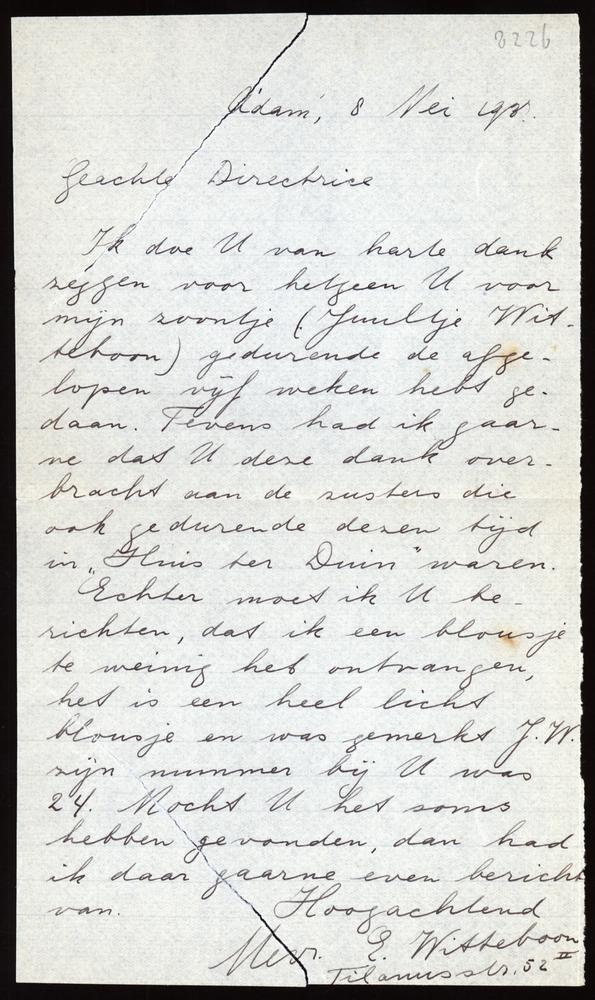 8226
A'dam, 8 Mei 193.
Geachte Directrice
Ik doe U van harte dank
zeggen voor hetgeen U voor
mijn zoontje (Juultje Wit-
teboon) gedurende de afge-
lopen vijf weken hebt ge-
daan. Tevens had ik gaar-
ne dat U deze dank over-
bracht aan de zusters die
ook gedurende dezen tijd
in „Huis ter Duin" waren.
Echter moet ik U be-
richten, dat ik een blousje
te weinig heb ontvangen,
het is een heel licht
blousje en was gemerkt J.W.
zijn nummer bij U was
24. Mocht U het soms
hebben gevonden, dan had
ik daar gaarne even bericht
van.
Hoogachtend
Mevr. E. Witteboon
Tilanusstr. 52 II